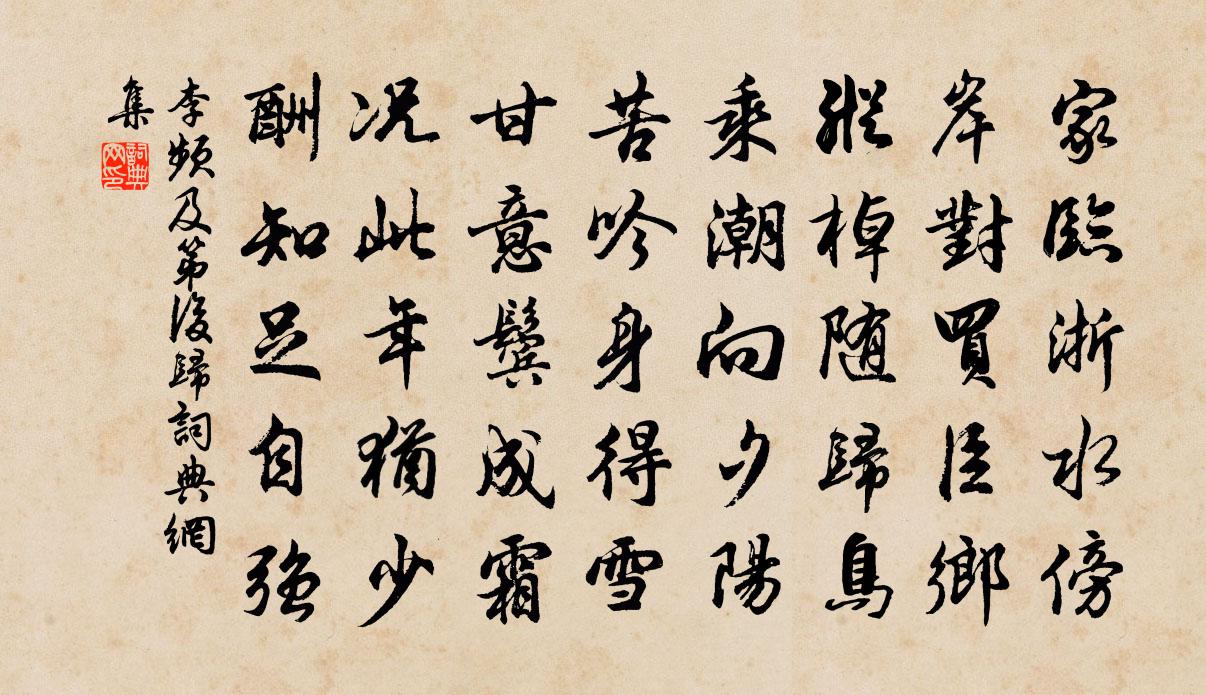 家臨浙水傍
岸對買臣鄉
縱棹随歸鳥
乘潮向夕陽
苦吟身得雪
甘意鬢成霜
况此年猶少
酬知足自強
李頻及第後歸詞典網
集
詞典網印